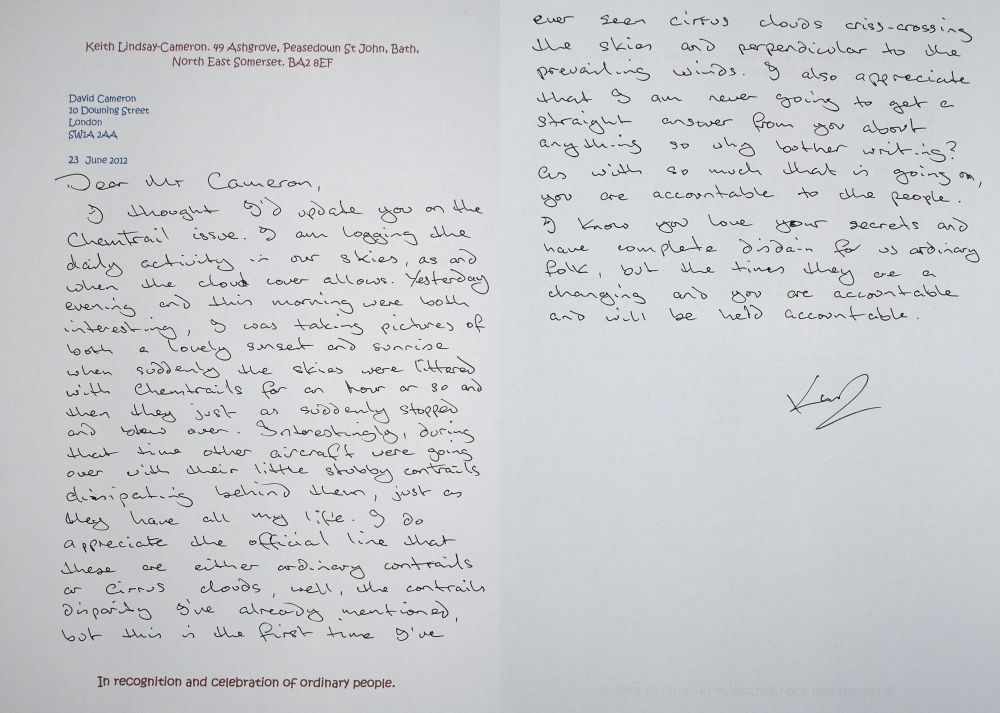 Keith Lindsay-Cameron. 49 Ashgrove, Peasedown St John, Bath,
North East Somerset. BA2 8EF
David Cameron
10 Downing Street
London
SW1A 2AA
23 June 2012
Dear Mr Cameron,
I thought I'd update you on the
Chemtrail issue. I am logging the
daily activity in our skies, as and
when the cloud cover allows. Yesterday
evening and this morning were both
interesting, I was taking pictures of
both a lovely sunset and sunrise
when suddenly the skies were littered
with Chemtrails for an hour or so and
then they just as suddenly stopped
and blew over. Interestingly, during
that time other aircraft were going
over with their little stubby contrails
dissipating behind them, just as
they have all my life. I do
appreciate the official line that
these are either ordinary contrails
or cirrus clouds, well, the contrails
disparity I've already mentioned,
but this is the first time I've
In recognition and celebration of ordinary people.
ever seen cirrus clouds criss-crossing
the skies and perpendicular to the
prevailing winds. I also appreciate
that I am never going to get a
straight answer from you about
anything so why bother writing?
As with so much that is going on,
you are accountable to the people.
I know you love your secrets and
have complete disdain for us ordinary
folk, but the times they are a
changing and you are accountable
and will be held accountable.